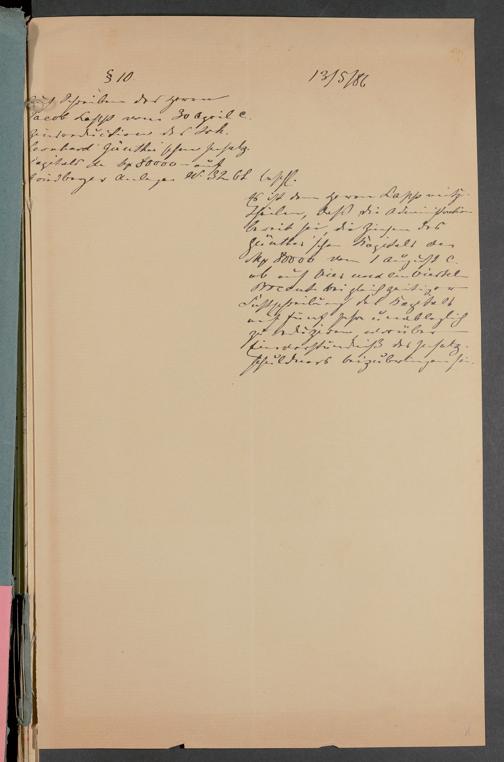 § 10
13/5/86
Auf Schreiben des Herrn
Jacob Lapp vom 30 April c.
Zinsreduction des Joh.
Leonhard Günther'schen Insatz-
kapitals de M 80000 auf
Friedberger Anlage No. 32 61
beschl.
Es ist dem Herrn Lapp mitzu-
theilen, daß die Administration
bereit sei, die Zinsen des
Günther'schen Kapitals von
M 80000 vom 1 August c.
ab auf Vier und ein Viertel
Procent bei gleichzeitiger
Festschreibung des Kapitals
auf fünf Jahre unablöslich
zu reduziren, worüber
Einverständniß des Insatz-
schuldners beizubringen sei.